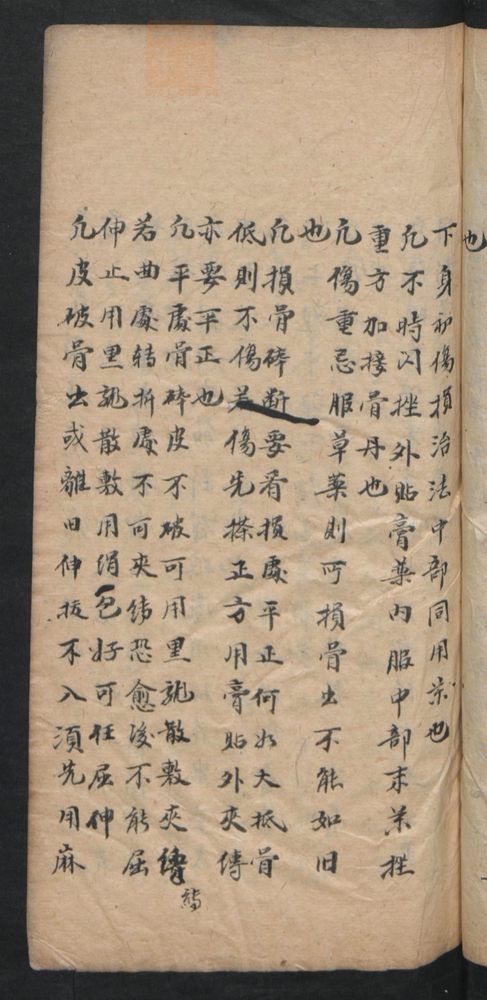 也
下身初傷損治法中部同用茶也
凢不時闪挫外贴膏藥内服中部末茶挫
重方加接骨丹也
凢傷重忌服草薬則所損骨出不能如旧
也
凢損骨碎断要看損處平正何如大抵骨
低則不傷若傷先搽正方用膏贴外夾縛
亦要平正也
凢平處骨碎皮不破可用黑龍散敷夾縛
若曲處转折處不可夾缚恐愈後不能屈
伸止用黑龍散敷用绢包好可任屈伸
凢皮破骨出或離旧伸拔不入湏先用麻